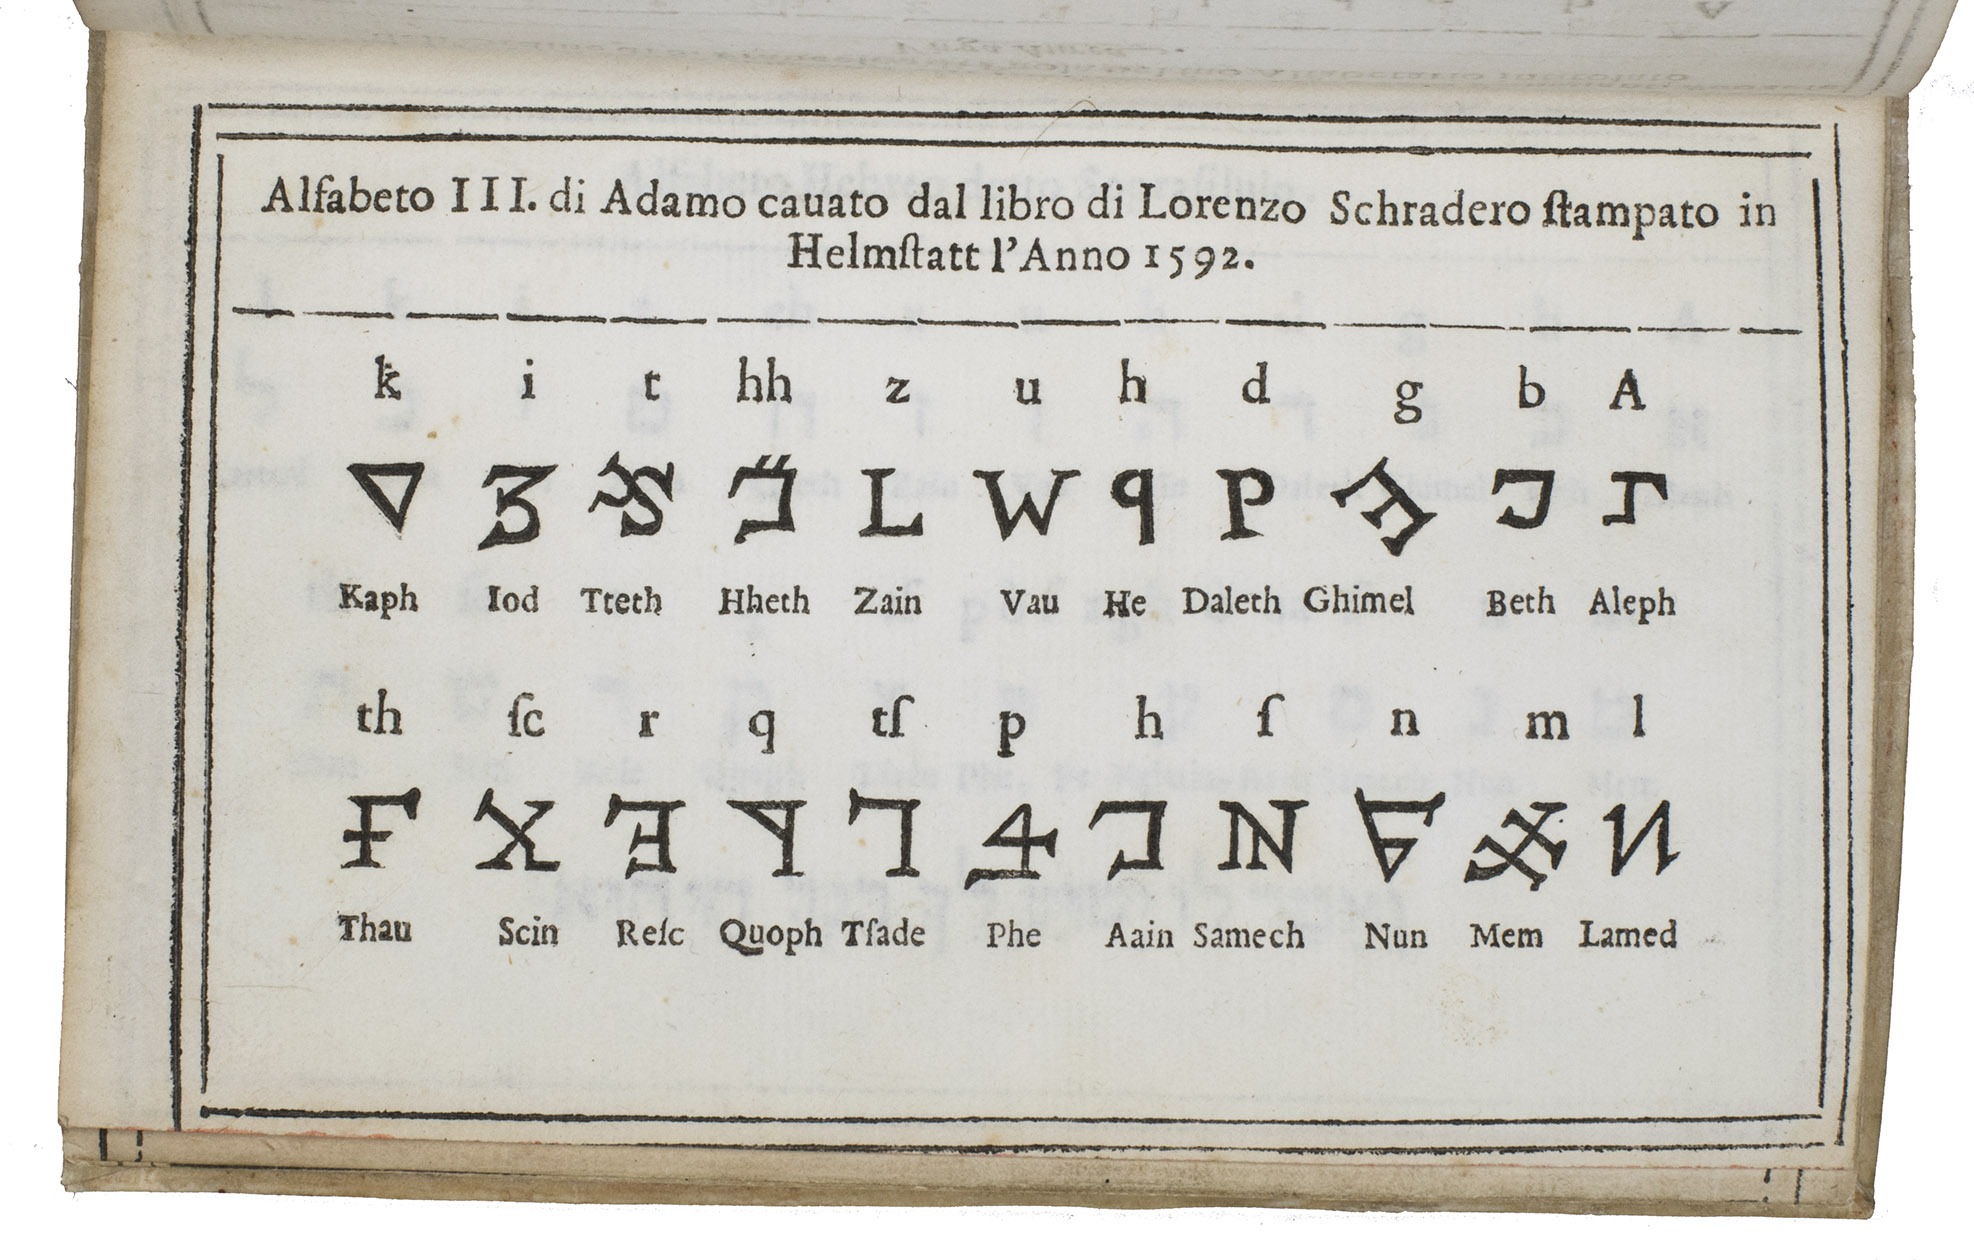 Alfabeto III. di Adamo cauato dal libro di Lorenzo Schradero ſtampato in
Helmſtatt l'Anno 1592.
k i t hh z u h d g b A
Kaph Iod Tteth Hheth Zain Vau He Daleth Ghimel Beth Aleph
th ſc r q tſ p h ſ n m l
Thau Scin Reſc Quoph Tſade Phe Aain Samech Nun Mem Lamed